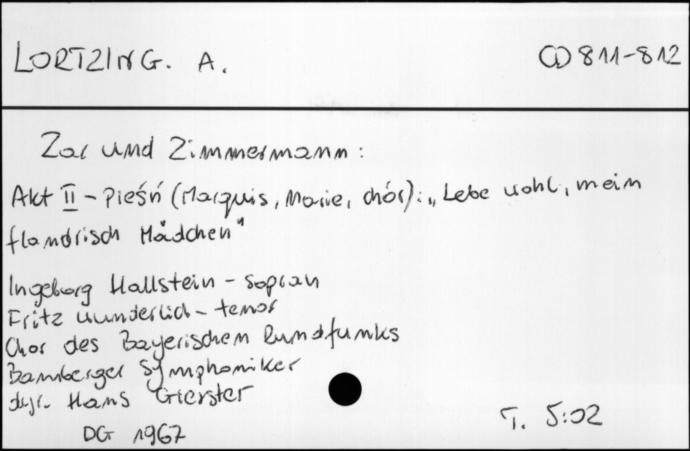 LORTZING. A.
CD 811-812
Zar und Zimmermann:
Akt II - Pieśń (Marquis, Marie, chór): „Lebe wohl, mein
flandrisch Mädchen"
Ingeborg Hallstein - sopran
Fritz Wunderlich - tenor
Chor des Bayerischen Rundfunks
Bamberger Symphoniker
dyr. Hans Gierster
T. 5:02
DG 1967